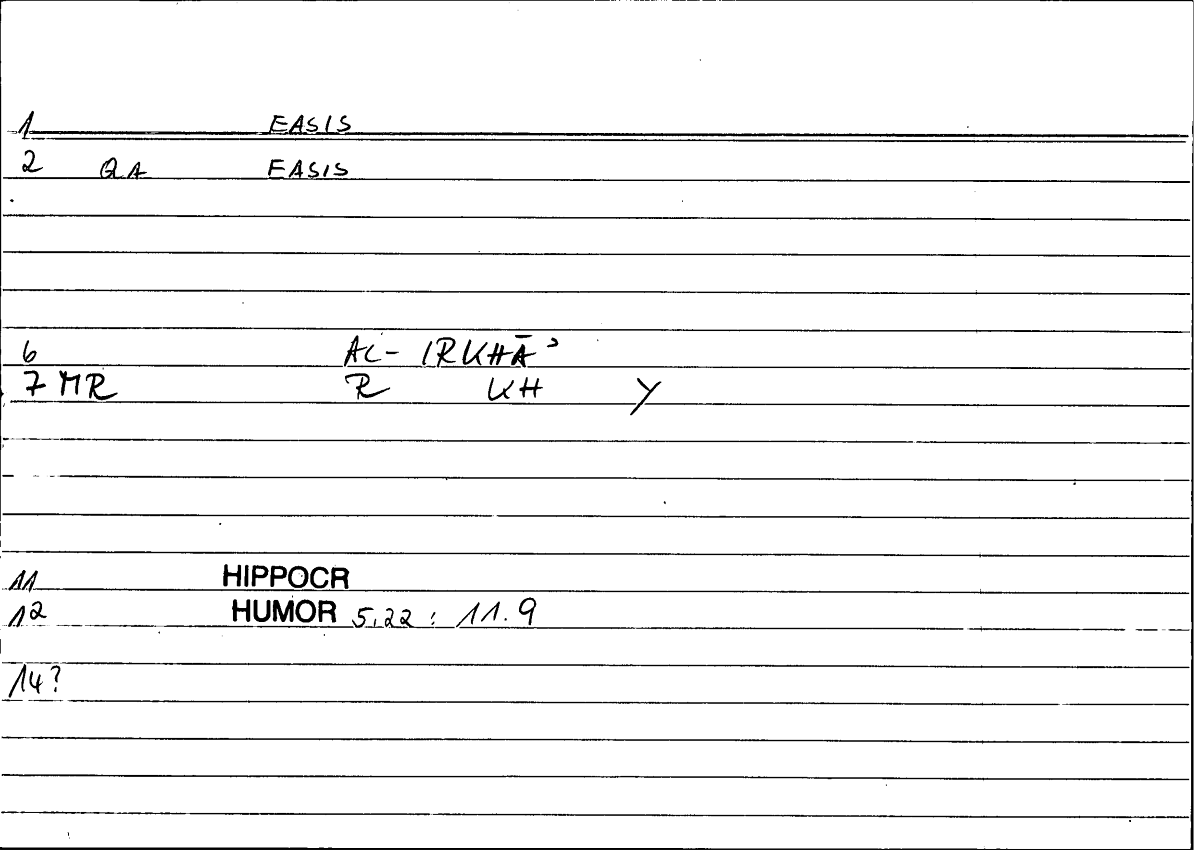 1 EASIS
2 QA EASIS
6 AL- IRKHĀʾ
7 MR R KH Y
11 HIPPOCR
12 HUMOR 5,22 : 11.9
14?